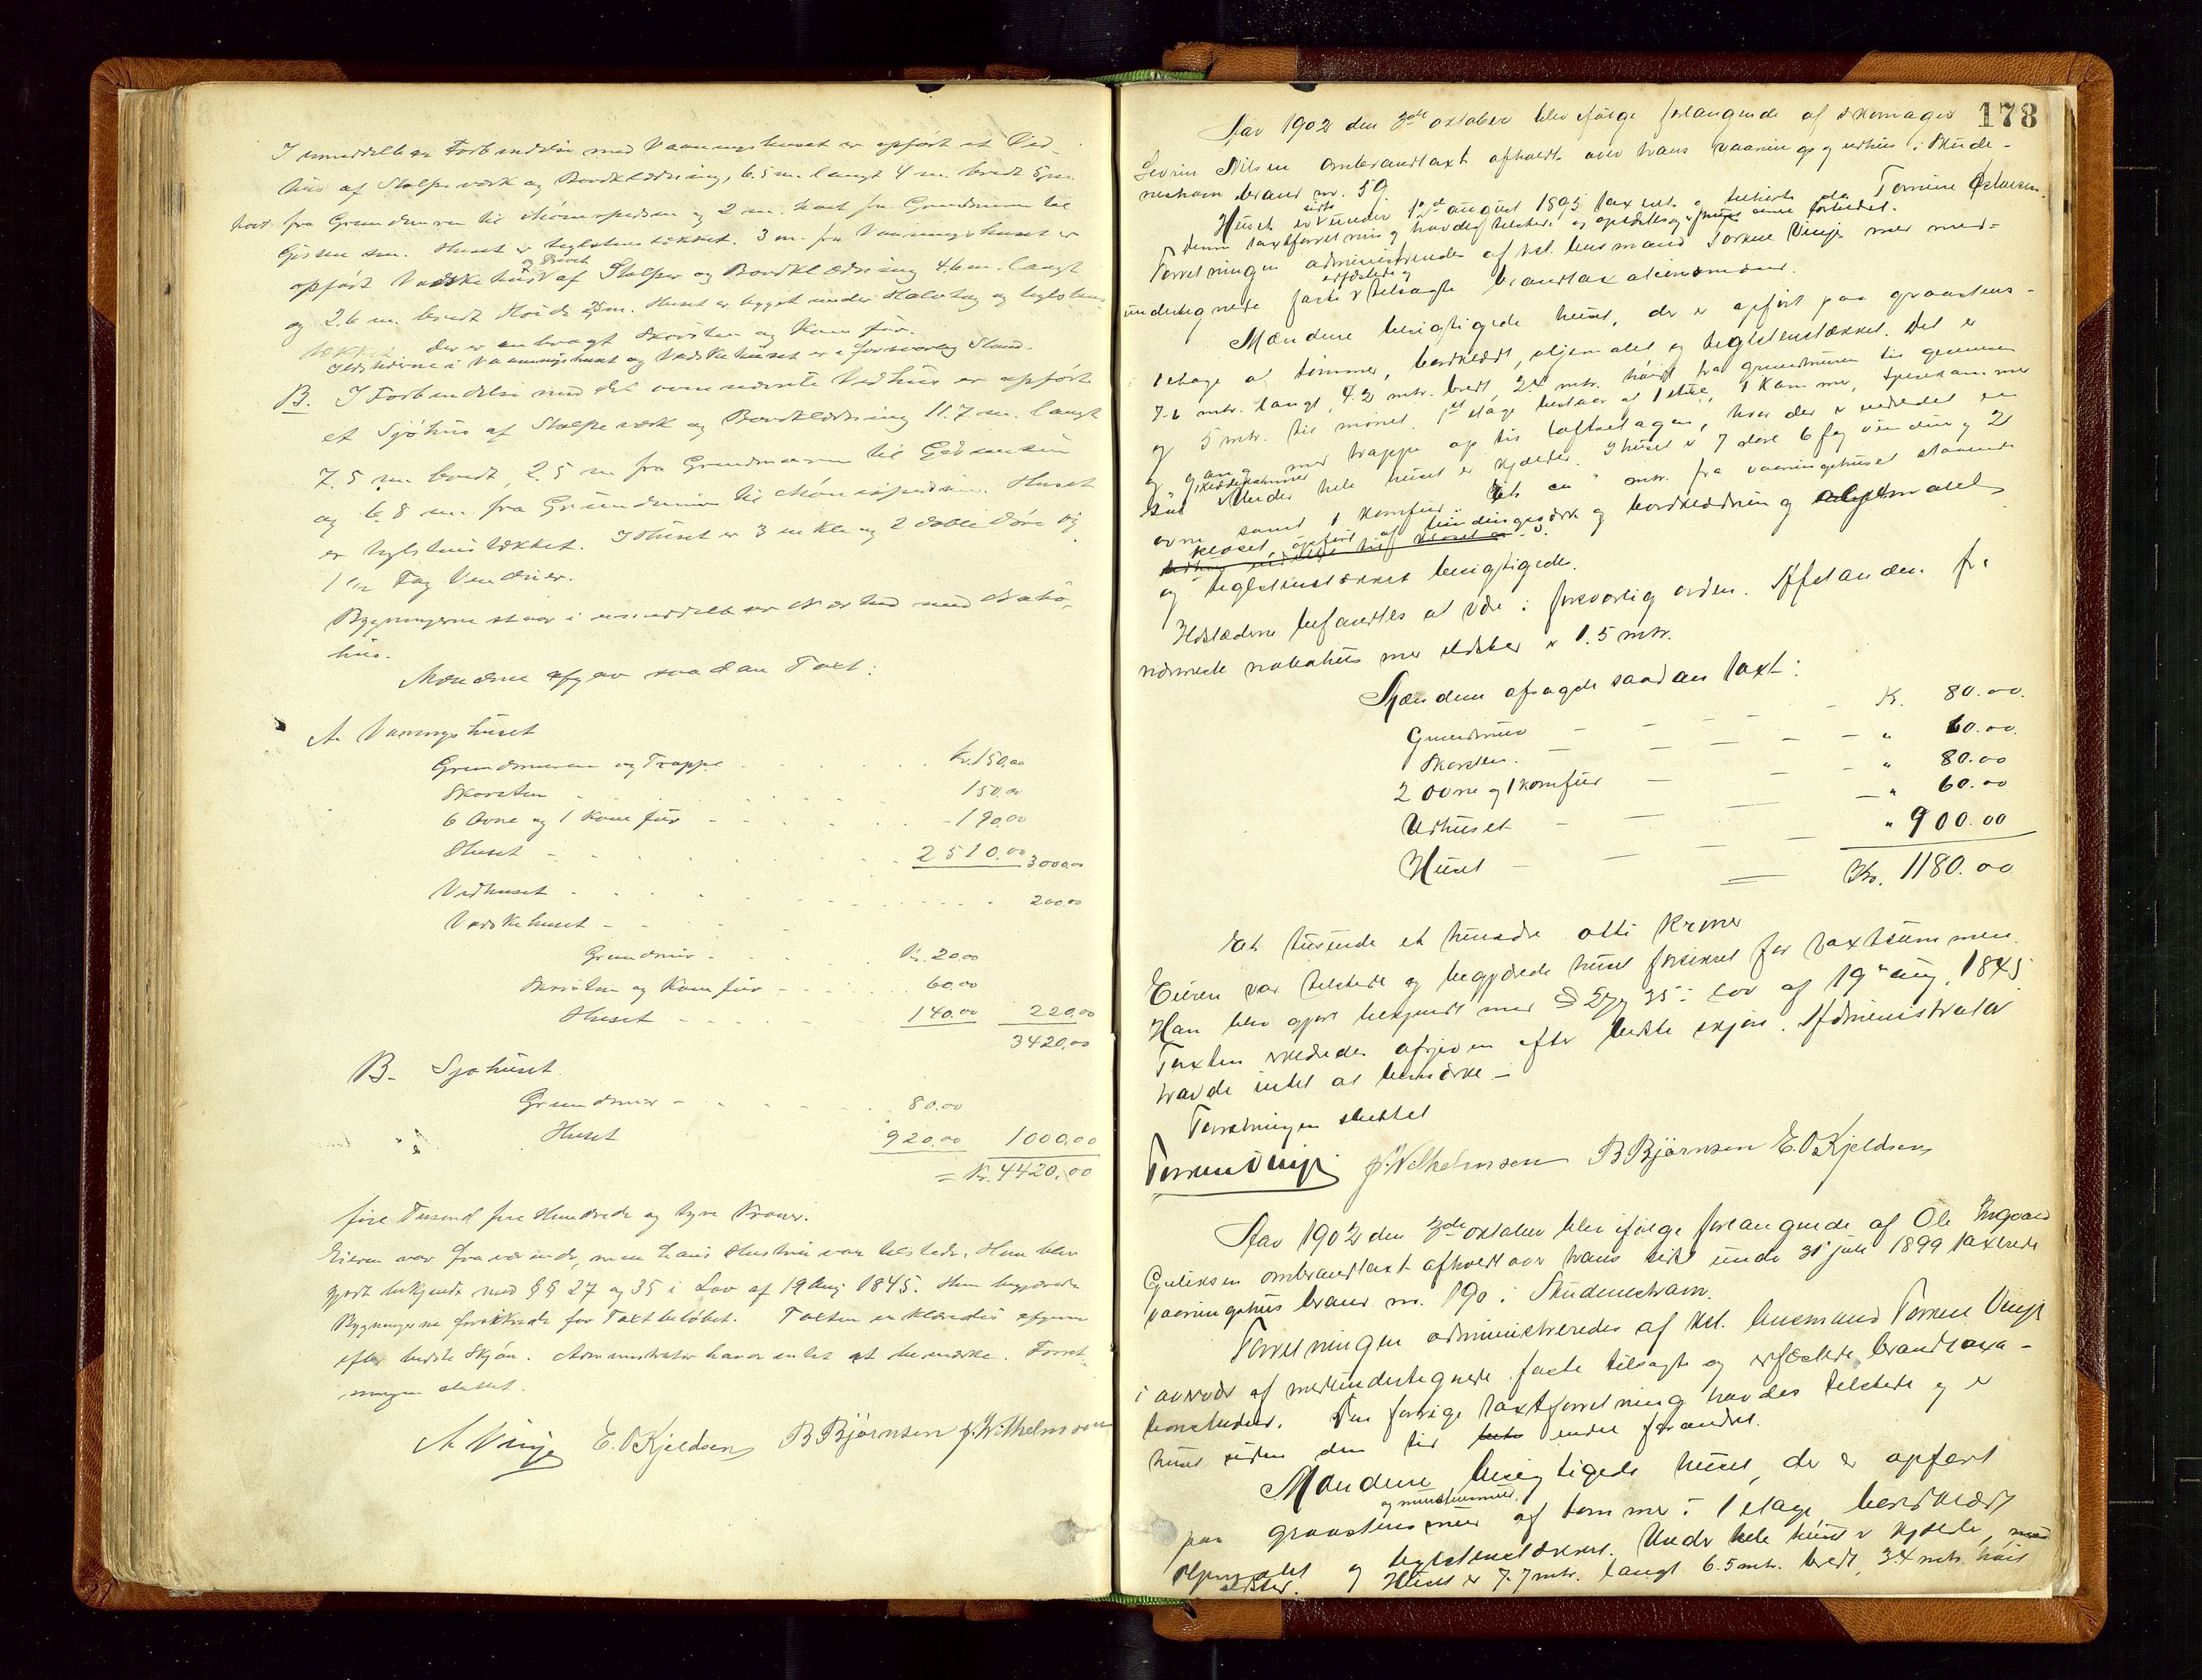 I umiddelbar Forbindelse med Vaaningshuset er opført et Ved-
hus af Stolpeværk og Bordklædning, 6.5 m. langt 4 m. bredt 5 m.
høit fra Grundmuren til Mønespidsen og 2 m. høit fra Grundmuren til
Gesimsen. Huset er teglstenstækket. 3 m. fra Vaaningshuset er
og Privet
opført Vaskehus af Stolper og Bordklædning 4.6 m. langt
og 2.6 m. bredt Høide 2,5 m. Huset er bygget under Halvtag og teglstens
tækket. Der er anbragt Skorsten og Komfur.
Ildstederne i Vaaningshuset og Vadskehuset er i forsvarlig Stand.
B. I Forbindelse med det ovennævnte Vedhus er opført
et Sjøhus af Stolpeværk og Bordklædning 11.7 m. langt
7.5 m. bredt, 2.5 m fra Grundmuren til Gesimsen
og 6.8 m. fra Grundmuren til Mønespidsen. Huset
er teglstenstækket. I Huset er 3 enkle og 2 doble Døre og
1 1/2 Fag Vinduer.
Bygningerne staar i umiddelbar Nærhed med Nabo-
hus.
Mændene afgav saadan Taxt:
A. Vaaningshuset
Grundmuren og Trappe kr. 150,00
Skorsten 150,00
6 Ovne og 1 Komfur - 190,00
Huset - 2510.00 3000,00
Vedhuset - 200,00
Vadskehuset -
Grundmur - Kr. 20.00
Skorsten og Komfur - 60,00
Huset - 140.00 220,00
3420,00
B. Sjøhuset.
Grundmur - 80.00
Huset 920.00 1000.00
= Kr. 4420,00
fire Tusend fire Hundrede og tyve Kroner.
Eieren var fraværende, men hans Hustru var tilstede. Hun blev
gjort bekjendt med §§ 27 og 35 i Lov af 19 Aug 1845. Hun begjærede
Bygningerne forsikrede for Taxtbeløbet. Taxten erklæredes afgiven
efter bedste Skjøn. Administrator havde intet at bemærke. Forret-
ningen sluttet.
A Vinje E. O Kjeldsen B Bjørnsen J. Wilhelmsen
178
Aar 1902 den 3die oktober blev ifølge forlangende af skomager
Severin Nilsen ombrandtaxt afholdt over hans vaanings og udhus i Skude-
neshavn brand nr. 59.
Huset er sidst under 12te august 1893 taxeret Tomine Østensen.
denne taxtforretning havdes tilstede og
Forretningen administreredes af kst. lensmand Torkel Vinje med med-
undertegnede faste edfæstede og tilsagte brandtaxationsmænd.
Mændene besigtigede huset, der er opført paa graastens-
1 etage af tømmer, bordklædt, oljemalet og teglstenstækket. Det er
7.6 mtr. langt, 4.2 mtr. bredt, 2.4 mtr. høit fra grundmuren til gesimsen
og 5 mtr. til mønet. 1st etage bestaar af 1 stue, 1 kammer, spisekammer
og gang med trappe op til loftsetagen, hvor der er indredet en
Under hele huset er kjælder. I huset er 7 døre 6 fag vinduer og 2
ovne samt 1 komfur. fra vaaningshuset staaende
kloset, opført af bindingsværk og bordklædning og oljemalet
og teglstenstækket besigtigede.
Ildstederne befandtes at være i forsvarlig orden. Afstanden fra
nærmeste nabohus med ildsted er 1.5 mtr.
Mændene afsagde saadan taxt:
Grundmur - - - - K. 80.00.
Skorsten. - - - - " 60.00.
2 ovne og 1 komfur - - " 80.00
Udhuset - - - " 60.00
Huset - - - " 900.00
Kr. 1180.00
Et tusinde et hundre otti kroner
Eieren var tilstede og begjærede huset forsikret for taxtsummen.
Han blev gjort bekjendt med §§ 27 og 35 i lov af 19de aug. 1845.
Taxten erklæredes afgiven efter bedste skjøn. Administrator
havde intet at bemærke -
Forretningen sluttet
Torkel Vinje J. Wilhelmsen B Bjørnsen E. O Kjeldsen
Aar 1902 den 3die oktober blev ifølge forlangende af Ole Ingvald
Guliksen ombrandtaxt afholdt over hans sidst under 31 juli 1899 taxerede
vaaningshus brand nr. 190 i Skudeneshavn.
Forretningen administreredes af kst. lensmand Torkel Vinje
i overvær af medundertegnede faste tilsagte og edfæstede brandtaxa-
tionsmænd. Den forrige taxtforretning havdes tilstede og er
huset siden den tid intet forandret.
Mændene besigtigede huset, der er opført
og murstensmur
paa graastensmur af tømmer i 1 etage bordklædt
oljemalet og teglstenstækket. Under hele huset er kjælder, med
ildsted. Huset er 7.7 mtr. langt 6.5 mtr. bredt, 3.4 mtr. høit